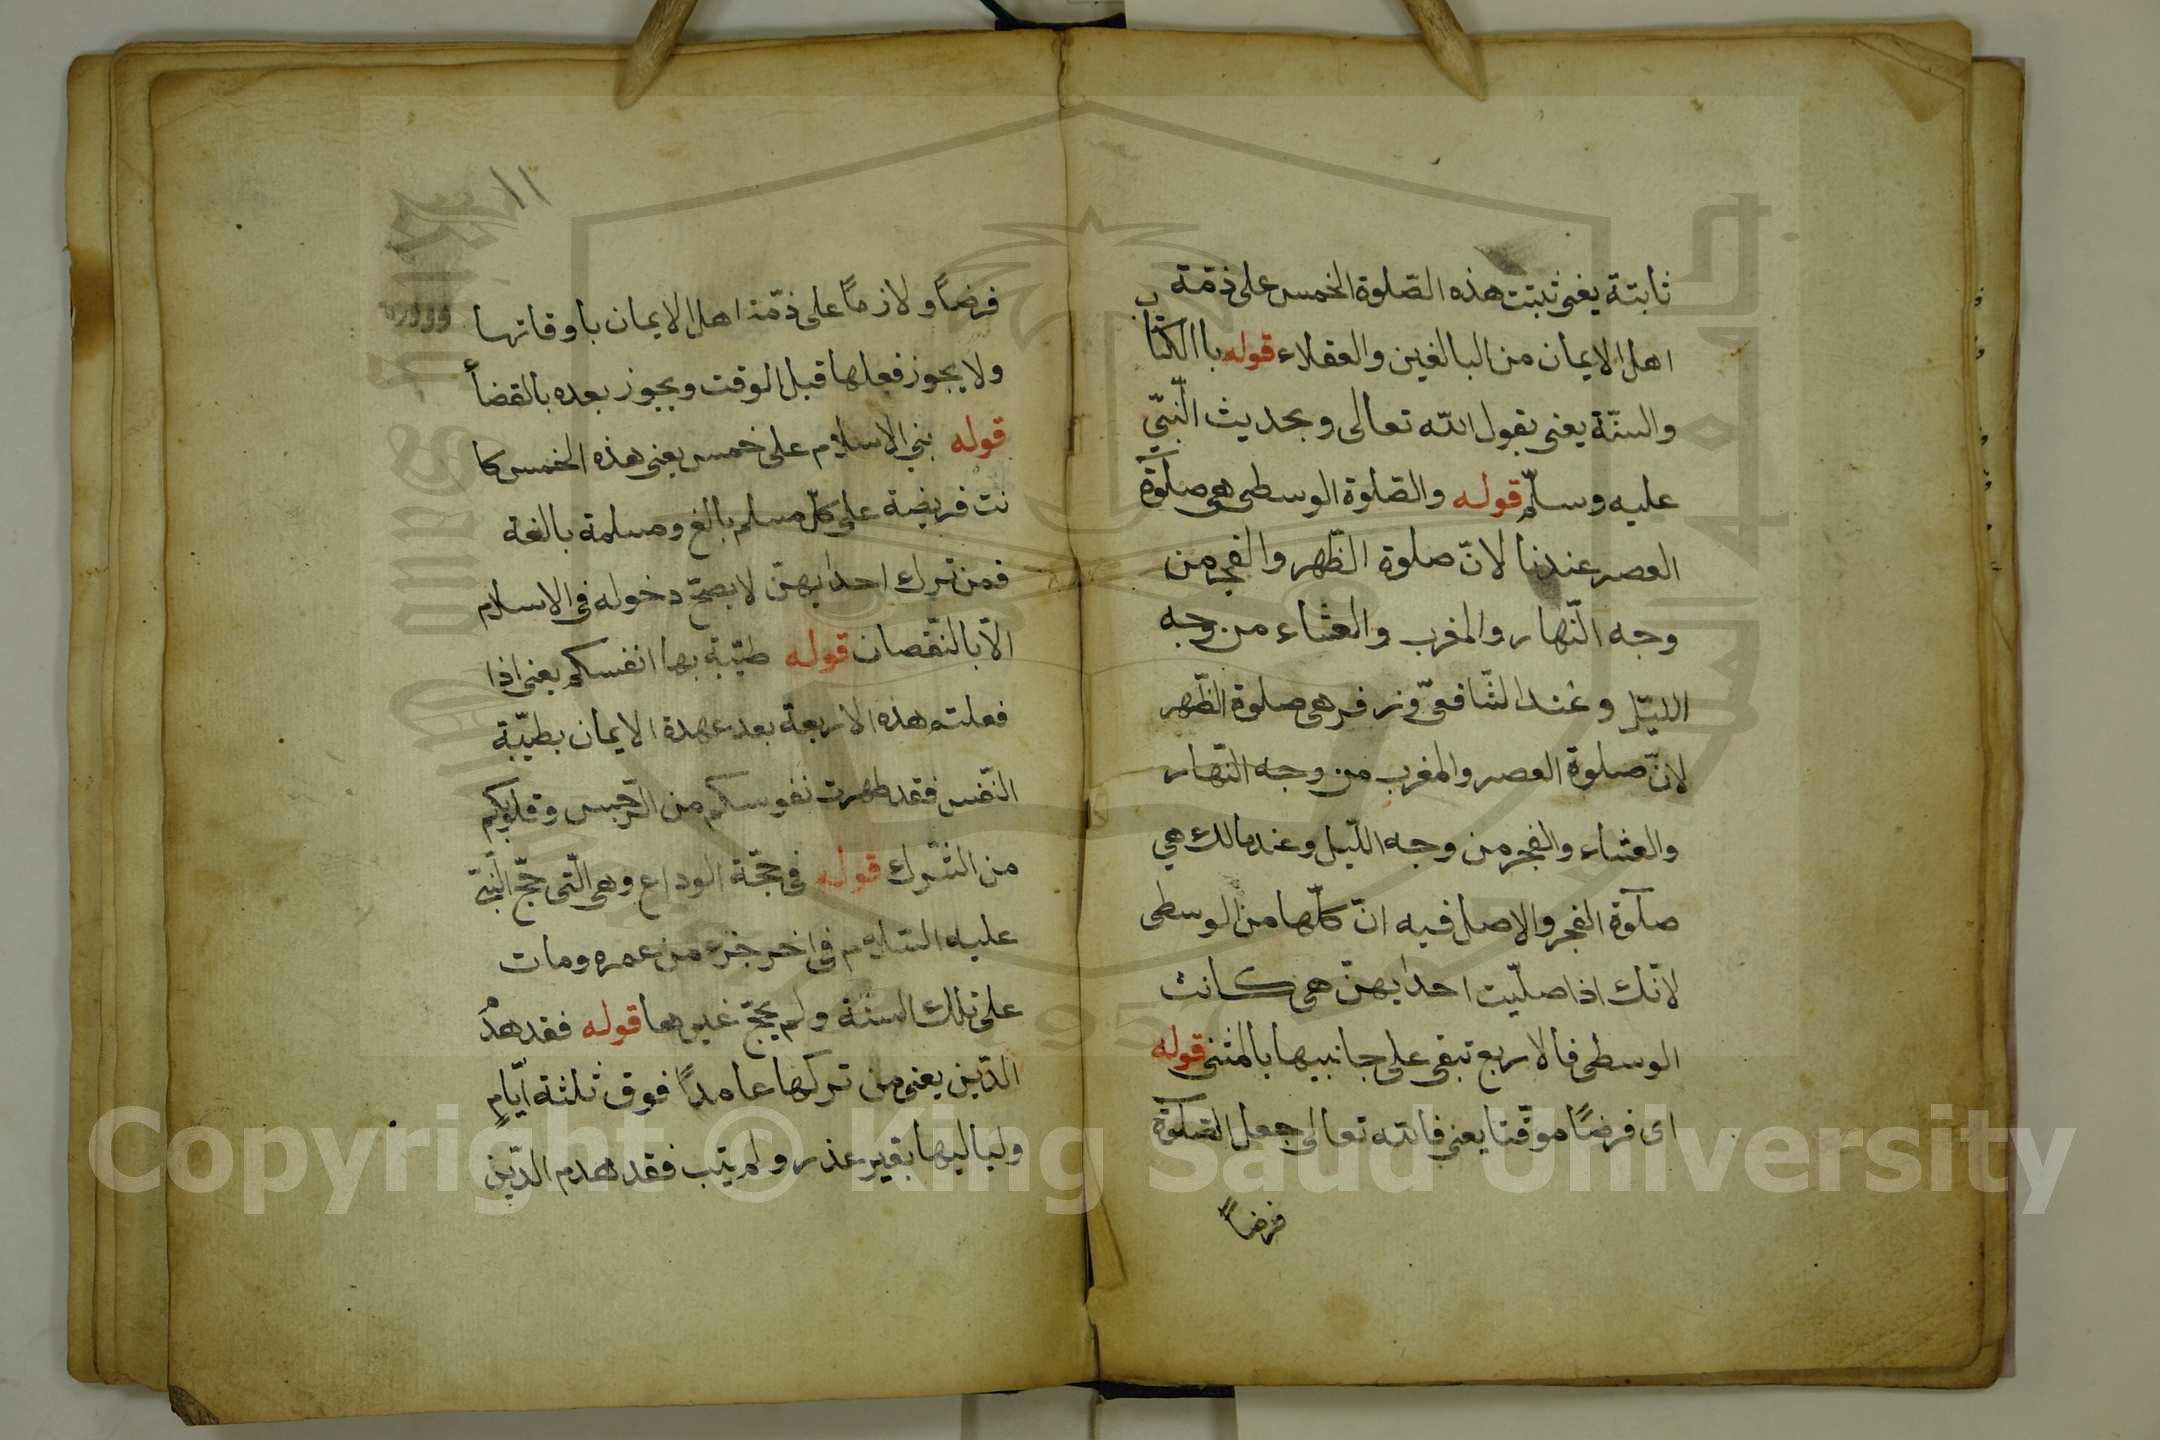 ثابتة يعنى ثبتت هذه الصّلوة الخمس على ذمّة
اهل الايمان من البالغين والعقلاء قوله باالكتاب
والسنّة يعنى بقول الله تعالى وبحديث النّبيّ
عليه وسلّم قوله والصّلوة الوسطى هى صلوة
العصر عندنا لانّ صلوة الظّهر والفجر من
وجه النّهار والمغرب والعشاء من وجه
الليّل وعند الشّافعىّ وزفر هى صلوة الظّهر
لانّ صلوة العصر والمغرب من وجه النّهار
والعشاء والفجر من وجه اللّيل وعند مالك هي
صلوة الفجر والاصل فيه انّ كلّها من الوسطى
لانّك اذا صلّيت احدايهنّ هى كانت
الوسطى فالاربع تبقى على جانبيها بالمثنى قوله
اى فرضًا موقّتا يعنى فالله تعالى جعل الصّلوة
فرضاً
١١
فرضاً ولازماً على ذمّة اهل الايمان باوقاتها
ولا يجوز فعلها قبل الوقت ويجوز بعده بالقضأ
قوله بني الاسلام على خمس يعنى هذه الخمس كا
نت فريضة على كلّ مسلم بالغ ومسلمة بالغة
فمن ترك احدايهنّ لا يصحّ دخوله فى الاسلام
الّا بالنّقصان قوله طيّبة بها انفسكم يعنى اذا
فعلته هذه الاربعة بعد عهدة الايمان بطيّبة
النّفس فقد طهرت نفوسكم من الرّجس وقلوبكم
من الشّرك قوله فى حجّة الوداع وهى الّتى حجّ النّبىّ
عليه السّلام فى اخر جزء من عمره ومات
على تلك السنّة ولم يحجّ غيرها قوله فقد هدم
الدّين يعنى من تركها عامداً فوق ثلثة ايّامٍ
ولياليها بغير عذر ولم يتب فقد هدم الدّين
Copyright © King Saud University